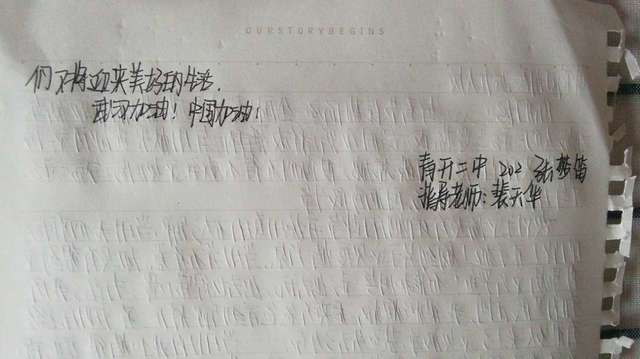 OURSTORYBEGINS
们又将迎来美好的生活.
武汉加油！中国加油！
青开二中 202 张梦笛
指导老师：裴天华